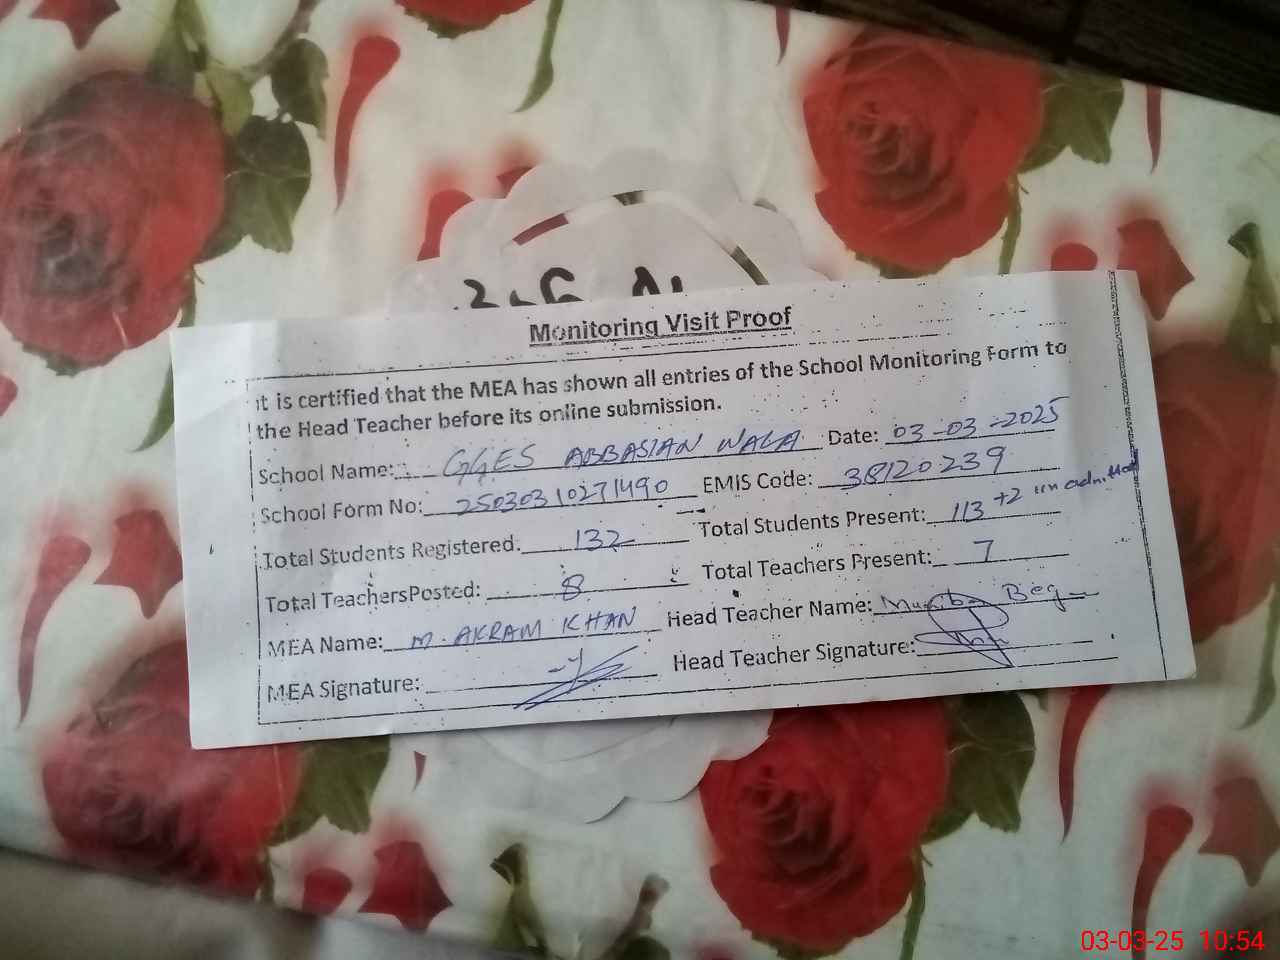 Monitoring Visit Proof
It is certified that the MEA has shown all entries of the School Monitoring Form to
the Head Teacher before its online submission.
School Name: GGES ABBASIAN WALA Date: 03-03-2025
School Form No: 25030310271490 EMIS Code: 38120239
Total Students Registered: 132 Total Students Present: 113 +2 un admitted
Total TeachersPosted: 8 Total Teachers Present: 7
MEA Name: M. AKRAM KHAN Head Teacher Name: Muniba Beg
MEA Signature: Head Teacher Signature:
03-03-25 10:54